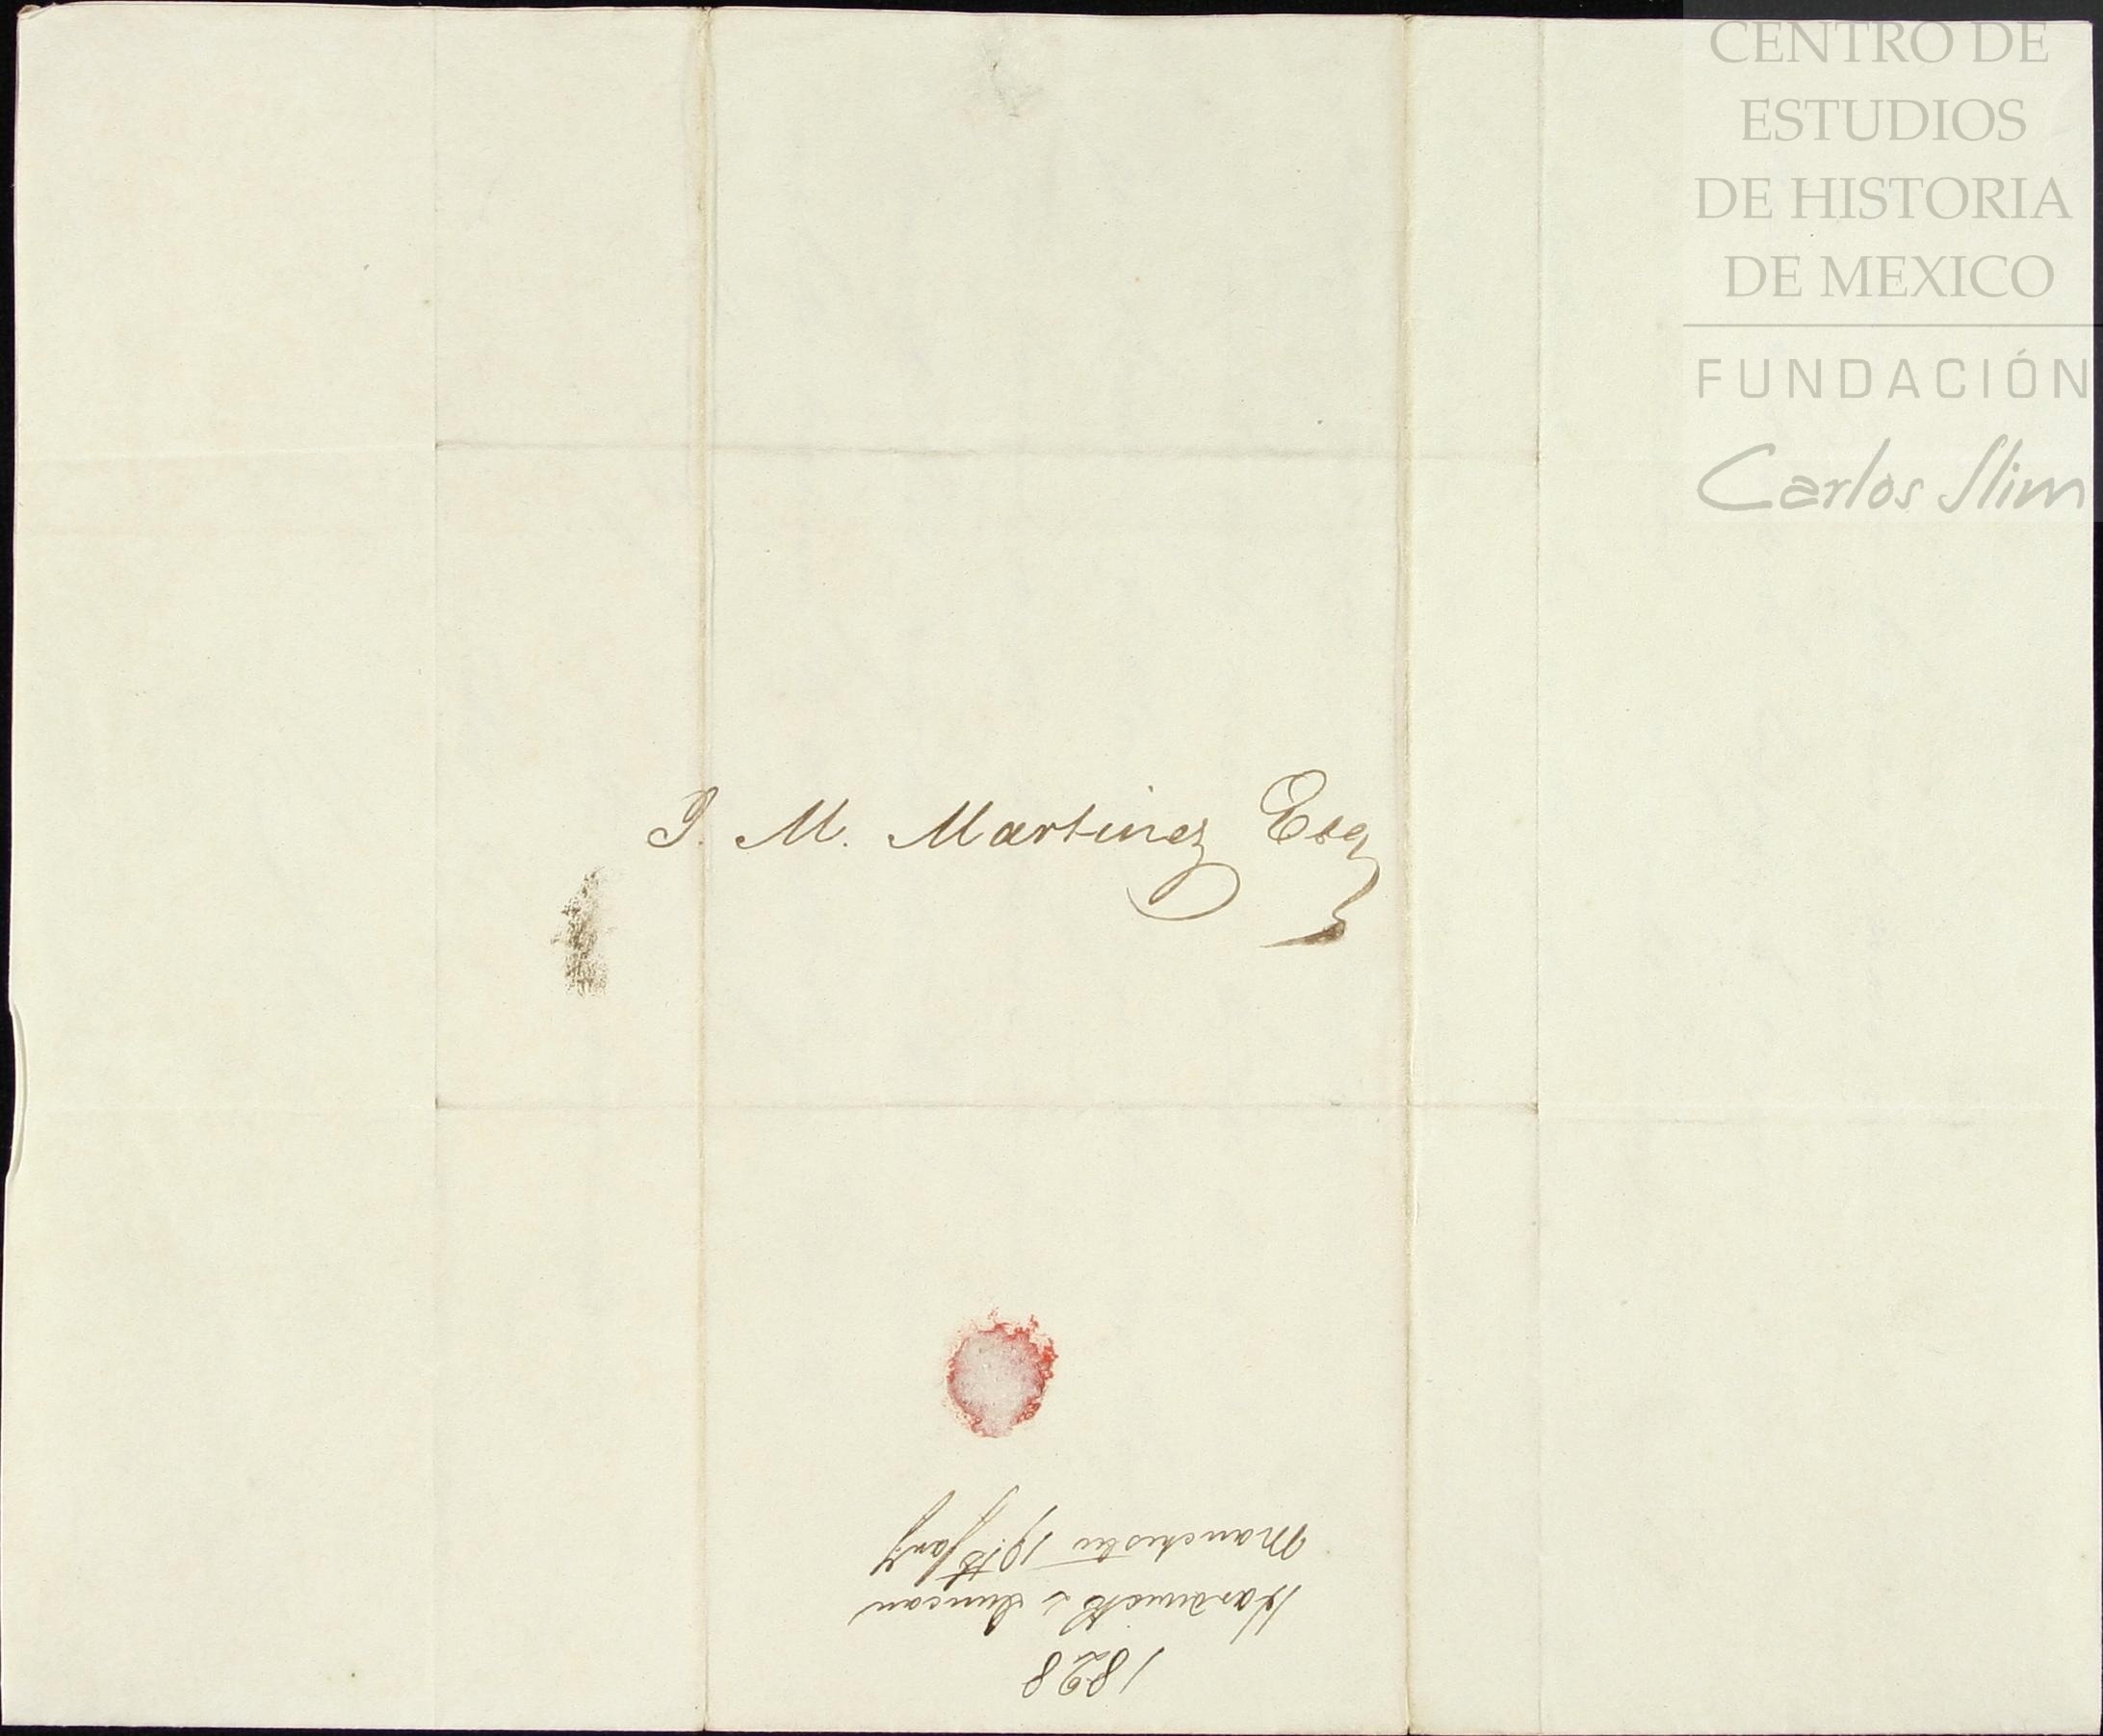 CENTRO DE
ESTUDIOS
DE HISTORIA
DE MEXICO
FUNDACIÓN
Carlos Slim
J. M. Martinez Esq
1828
& Duncan
Manchester 19th Jany